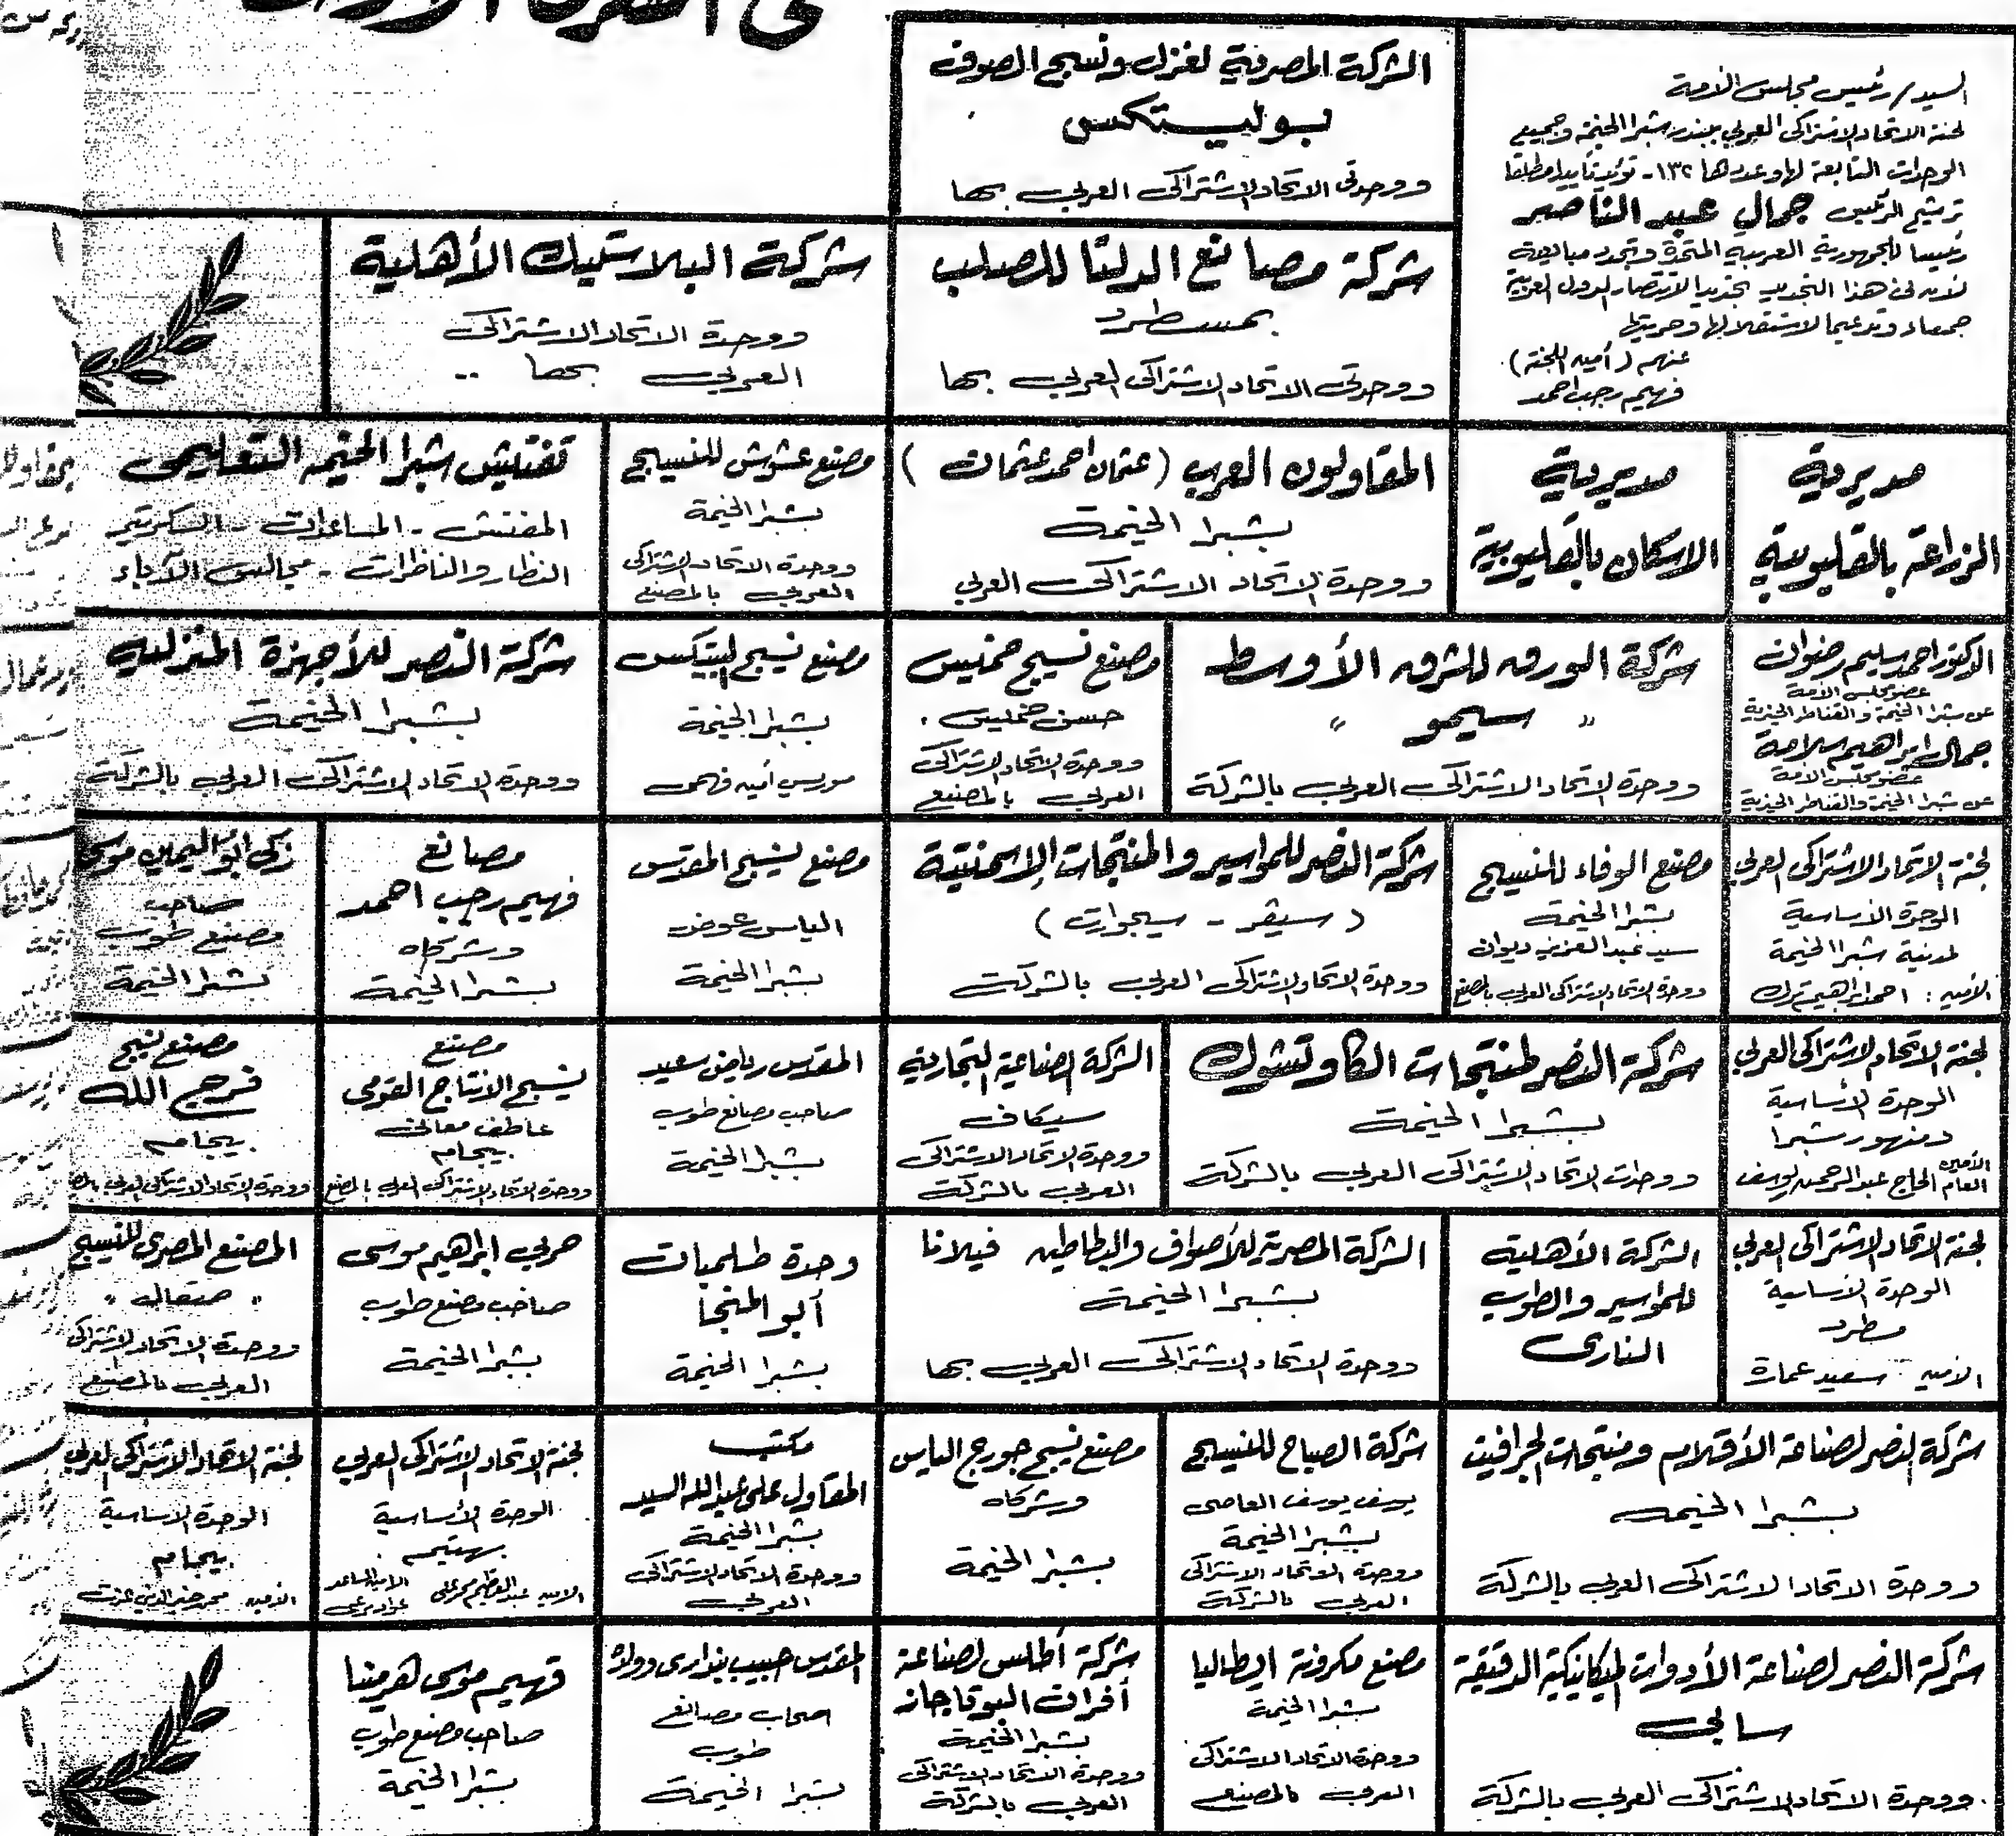 السيد / رئيس مجلس الأمة
لجنة الاتحاد الاشتراكى العربى ببندر شبرا الخيمة وجميع
الوحدات التابعة لها وعددها ١٣٢ - تؤيد تأييدا مطلقا
ترشيح الرئيس جمال عبد الناصر
رئيسا للجمهورية العربية المتحدة وتجدد مبايعته
لأن فى هذا التجديد تجديدا لانتصار الدول العربية
جمعاء وتدعيما لاستقلالها وحريتها
عنهم (أمين اللجنة)
فهيم رجب احمد
الشركة المصرية لغزل ونسج الصوف
بوليتكس
ووحدتى الاتحاد الاشتراكى العربى بها
شركة مصانع الدلتا للصلب
بمسطرد
ووحدتى الاتحاد الاشتراكى العربى بها
شركة البلاستيك الأهلية
ووحدة الاتحاد الاشتراكى
العربى بها ..
مديرية
الزراعة بالقليوبية
مديرية
الاسكان بالقليوبية
المقاولون العرب (عثمان احمد عثمان)
بشبرا الخيمة
ووحدة الاتحاد الاشتراكى العربى
مصنع عشوش للنسيج
بشبرا الخيمة
ووحدة الاتحاد الاشتراكى
العربى بالمصنع
تفتيش شبرا الخيمه التعليمى
المفتش - المساعدات - السكرتير
النظار والناظرات - مجالس الآباء
الدكتور احمد سليم رضوان
عضو مجلس الأمة
عن شبرا الخيمة والقناطر الخيرية
جمال ابراهيم سلامة
عضو مجلس الأمة
عن شبرا الخيمة والقناطر الخيرية
شركة الورق للشرق الأوسط
" سيمو "
ووحدة الاتحاد الاشتراكى العربى بالشركة
مصنع نسيج خميس
حسن خميس .
ووحدة الاتحاد الاشتراكى
العربى بالمصنع
مصنع نسيج ليتكس
بشبرا الخيمة
موريس أمين فهمى
شركة النصر للأجهزة المنزلية
بشبرا الخيمة
ووحدة الاتحاد الاشتراكى العربى بالشركة
لجنة الاتحاد الاشتراكى العربى
الوحدة الأساسية
لمدينة شبرا الخيمة
الأمين : احمد ابراهيم ترك
مصنع الوفاء للنسيج
بشبرا الخيمة
سيد عبد العزيز ديوان
ووحدة الاتحاد الاشتراكى العربى بالمصنع
شركة النصر للمواسير والمنتجات الإسمنتية
( سيقر - سيجوارت )
ووحدة الاتحاد الاشتراكى العربى بالشركة
مصنع نسيج المقدس
الياس عوض
بشبرا الخيمة
مصانع
فهيم رجب احمد
وشركاه
بشبرا الخيمة
زكى ابو اليمين موسى
صاحب
مصنع طوب
بشبرا الخيمة
لجنة الاتحاد الاشتراكى العربى
الوحدة الأساسية
دمنهور شبرا
الأمين العام الحاج عبد الرحمن يوسف
شركة النصر لمنتجات الكاوتشوك
بشبرا الخيمة
ووحدات الاتحاد الاشتراكى العربى بالشركة
الشركة الصناعية التجارية
سيكاف
ووحدة الاتحاد الاشتراكى
العربى بالشركة
المقدس رياض سعيد
صاحب مصانع طوب
بشبرا الخيمة
مصنع
نسيج الانتاج القومى
عاطف معانى
بيجام
ووحدة الاتحاد الاشتراكى العربى بالمصنع
مصنع نسيج
فرج الله
بيجام
ووحدة الاتحاد الاشتراكى العربى
لجنة الاتحاد الاشتراكى العربى
الوحدة الأساسية
مسطرد
الأمين سعيد عمارة
الشركة الأهلية
للمواسير والطوب
النارى
الشركة المصرية للأصواف والبطاطين فيلانا
بشبرا الخيمة
ووحدة الاتحاد الاشتراكى العربى بها
وحدة طلمبات
أبو المنجا
بشبرا الخيمة
حربى ابراهيم موسى
صاحب مصنع طوب
بشبرا الخيمة
المصنع المصرى للنسيج
" صتقال "
ووحدة الاتحاد الاشتراكى
العربى بالمصنع
شركة النصر لصناعة الأقلام ومنتجات الجرافيت
بشبرا الخيمه
ووحدة الاتحاد الاشتراكى العربى بالشركة
شركة الصباح للنسيج
يوسف يوسف العاصى
بشبرا الخيمة
ووحدة الاتحاد الاشتراكى
العربى بالشركة
مصنع نسيج جورج الياس
وشركاه
بشبرا الخيمة
مكتب
المقاول على عبد الله السيد
بشبرا الخيمة
ووحدة الاتحاد الاشتراكى
العربى
لجنة الاتحاد الاشتراكى العربى
الوحدة الأساسية
بهتيم
الامين عبد العظيم محمد على الامين المساعد
لجنة الاتحاد الاشتراكى العربى
الوحدة الأساسية
بيجام
الأمين محمد خير الدين عزت
شركة النصر لصناعة الأدوات الميكانيكية الدقيقة
سابى
ووحدة الاتحاد الاشتراكى العربى بالشركة
مصنع مكرونة ايطاليا
بشبرا الخيمة
ووحدة الاتحاد الاشتراكى
العربى بالمصنع
شركة أطلس لصناعة
أفران البوتاجاز
بشبرا الخيمة
ووحدة الاتحاد الاشتراكى
العربى بالشركة
المقدس حبيب بندارى وولده
اصحاب مصانع
طوب
بشبرا الخيمة
فهيم موسى هرمينا
صاحب مصنع طوب
بشبرا الخيمة